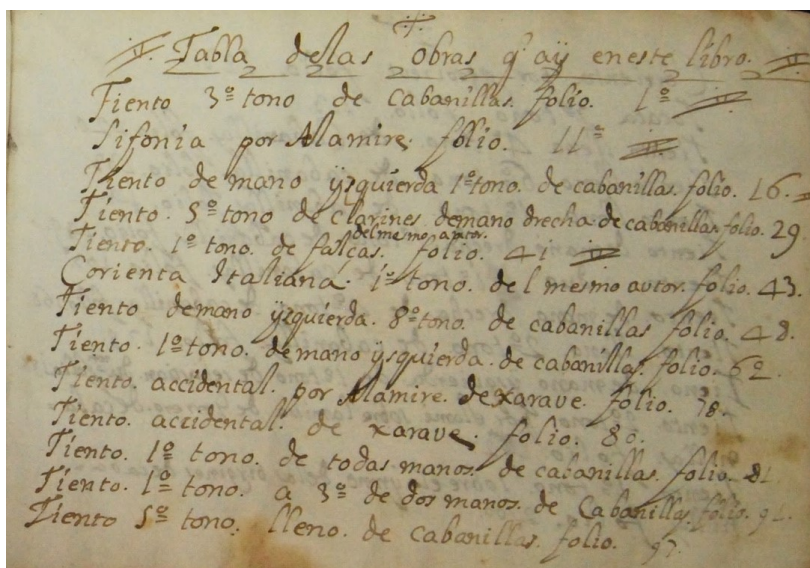 Tabla delas obras q̃ aÿ eneste libro.
Tiento 3º tono de cabanillas. folio. 1º
Sifonia por Alamire. folio. 11º
Tiento de mano ÿzquierda 1º tono. de cabanillas. folio. 16.
Tiento. 5º tono de clarines demano drecha. de cabanillas folio. 29
delmesmo autor.
Tiento. 1º tono. de falças. folio. 41
Corienta Italiana. 1º tono. del mesmo autor. folio. 43.
Tiento demano ÿzquierda. 8º tono. de cabanillas folio. 48.
Tiento. 1º tono. de mano ÿsquierda. de cabanillas. folio. 62.
Tiento. accidental. por Alamire. de xarave. folio. 78.
Tiento. accidental. de xarave. folio. 80.
Tiento. 1º tono. de todas manos. de cabanillas. folio. 81
Tiento. 1º tono. a 3º de dos manos. de Cabanillas. folio.
Tiento 5º tono. lleno. de cabanillas. folio. 97.